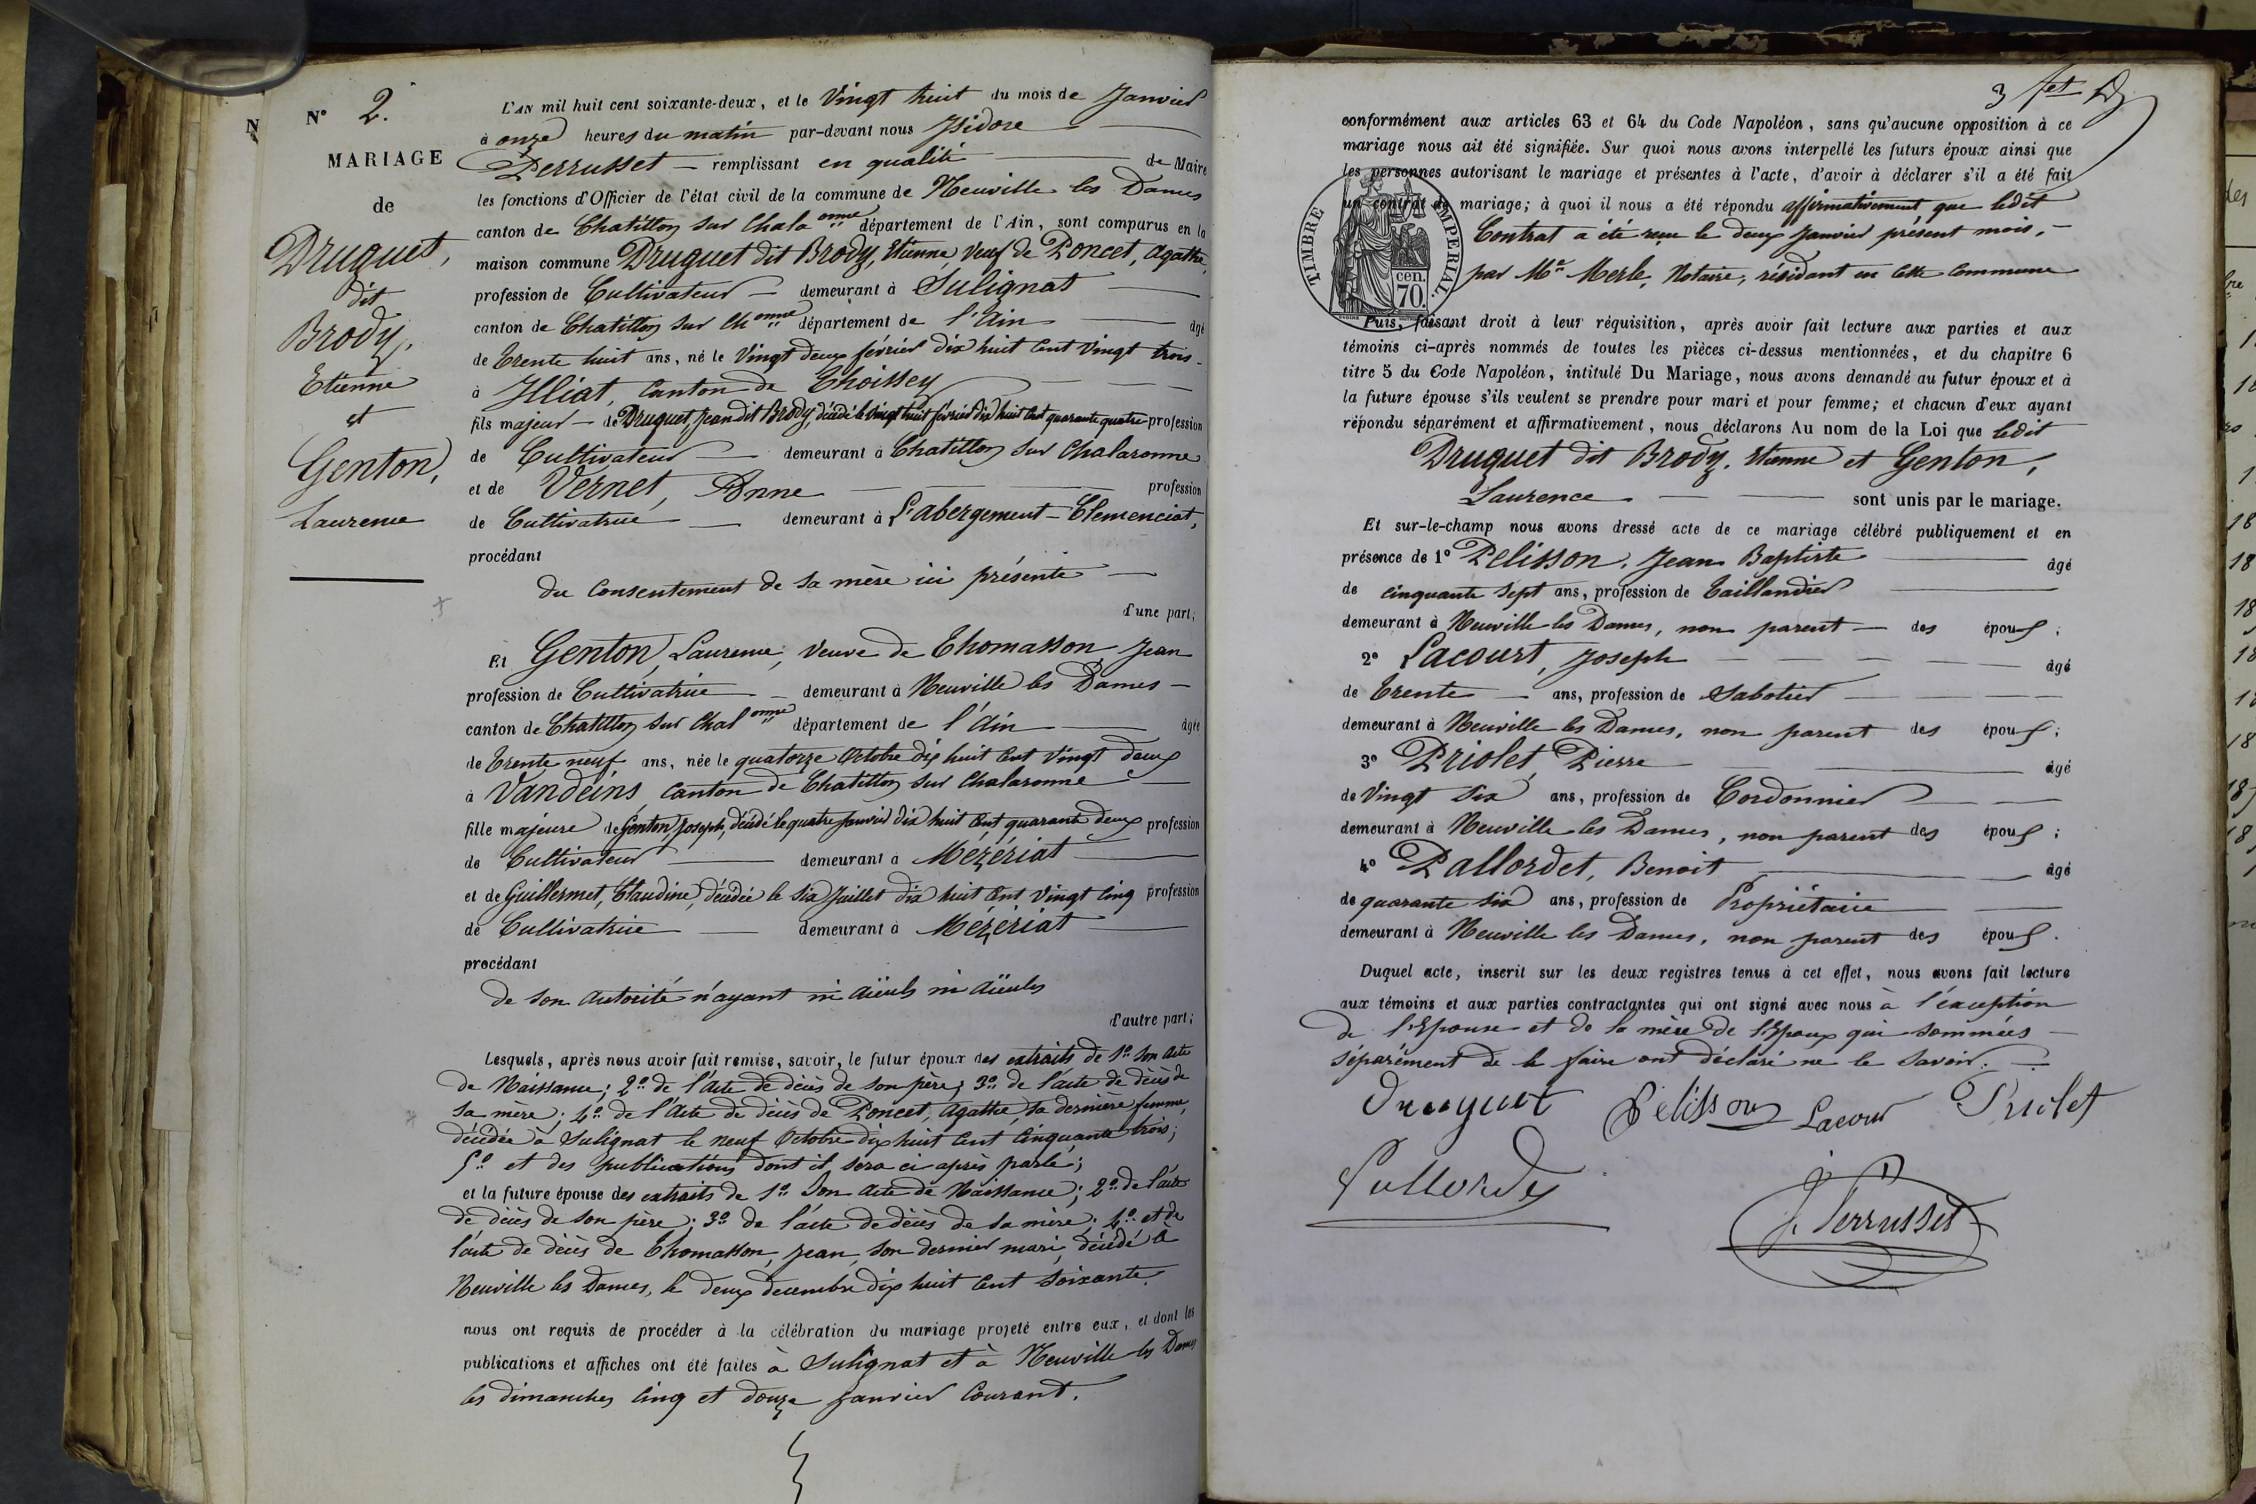 N
N° 2.
MARIAGE
de
Druguet,
dit
Brody,
Etienne
et
Genton,
Laurence
L'AN mil huit cent soixante-deux, et le Vingt huit du mois de Janvier
à onze heures du matin par-devant nous Isidore
Perrusset remplissant en qualité de Maire
les fonctions d'Officier de l'état civil de la commune de Neuville les Dames
canton de Chatillon sur Chalaronne département de l'Ain, sont comparus en la
maison commune Druguet dit Brody, Etienne, Veuf de Poncet, Agathe,
profession de Cultivateur demeurant à Sulignat
canton de Chatillon sur Chonne département de l'Ain âgé
de trente huit ans, né le Vingt deux février dix huit cent vingt trois
à Illiat, Canton de Thoissey
fils majeur de Druguet, Jean dit Brody, décédé le vingt huit février dix huit cent quarante quatre profession
de Cultivateur demeurant à Chatillon sur Chalaronne
et de Vernet, Anne profession
de Cultivatrice demeurant à L'abergement-Clemenciat,
procédant
du Consentement de sa mère ici présente
d'une part;
Et Genton, Laurence, Veuve de Thomasson Jean
profession de Cultivatrice demeurant à Neuville les Dames
canton de Chatillon sur Chalonne département de l'Ain âgée
de trente neuf ans, née le quatorze Octobre dix huit cent vingt deux
à Vandeins, Canton de Chatillon sur Chalaronne
fille majeure de Genton Joseph, décédé le quatre Janvier dix huit cent quarante deux profession
de Cultivateur demeurant à Mézériat
et de Guillermet, Claudine, décédée le six Juillet dix huit cent vingt cinq profession
de Cultivatrice demeurant à Mézériat
procédant
de son autorité n'ayant ni aïeuls ni aïeules
d'autre part;
Lesquels, après nous avoir fait remise, savoir, le futur époux des extraits de 1° son acte
de Naissance; 2° de l'acte de décès de son père; 3° de l'acte de décès de
sa mère; 4° de l'acte de décès de Poncet, Agathe, sa dernière femme,
décédée à Sulignat le neuf Octobre dix huit cent cinquante trois;
5° et des publications dont il sera ci après parlé;
et la future épouse des extraits de 1° son acte de Naissance; 2° de l'acte
de décès de son père; 3° de l'acte de décès de sa mère; 4° et de
l'acte de décès de Thomasson, Jean, son dernier mari, décédé à
Neuville les Dames, le deux decembre dix huit cent soixante.
nous ont requis de procéder à la célébration du mariage projeté entre eux, et dont les
publications et affiches ont été faites à Sulignat et à Neuville les Dames
les dimanches cinq et douze Janvier Courant.
3 fet
conformément aux articles 63 et 64 du Code Napoléon, sans qu'aucune opposition à ce
mariage nous ait été signifiée. Sur quoi nous avons interpellé les futurs époux ainsi que
les personnes autorisant le mariage et présentes à l'acte, d'avoir à déclarer s'il a été fait
un contrat de mariage; à quoi il nous a été répondu affirmativement, que ledit
Contrat a été reçu le deux Janvier présent mois,
par Me Merle, Notaire, résidant en cette Commune
TIMBRE IMPERIAL
cen.
70.
Puis, faisant droit à leur réquisition, après avoir fait lecture aux parties et aux
témoins ci-après nommés de toutes les pièces ci-dessus mentionnées, et du chapitre 6
titre 5 du Code Napoléon, intitulé Du Mariage, nous avons demandé au futur époux et à
la future épouse s'ils veulent se prendre pour mari et pour femme; et chacun d'eux ayant
répondu séparément et affirmativement, nous déclarons Au nom de la Loi que ledit
Druguet dit Brody, Etienne et Genton,
Laurence sont unis par le mariage.
Et sur-le-champ nous avons dressé acte de ce mariage célébré publiquement et en
présence de 1° Pelisson, Jean Baptiste âgé
de cinquante sept ans, profession de Taillandier
demeurant à Neuville les Dames, non parent des époux;
2° Lacourt, Joseph âgé
de trente ans, profession de Sabotier
demeurant à Neuville les Dames, non parent des époux;
3° Priolet, Pierre âgé
de Vingt six ans, profession de Cordonnier
demeurant à Neuville les Dames, non parent des époux;
4° Pallordet, Benoit âgé
de quarante six ans, profession de Propriétaire
demeurant à Neuville les Dames, non parent des époux.
Duquel acte, inscrit sur les deux registres tenus à cet effet, nous avons fait lecture
aux témoins et aux parties contractantes qui ont signé avec nous à l'exception
de l'Epouse et de la mère de l'Epoux qui sommées
séparément de le faire ont déclaré ne le savoir.
Druguet Pelisson Lacour Priolet
Pallordet
J. Perrusset